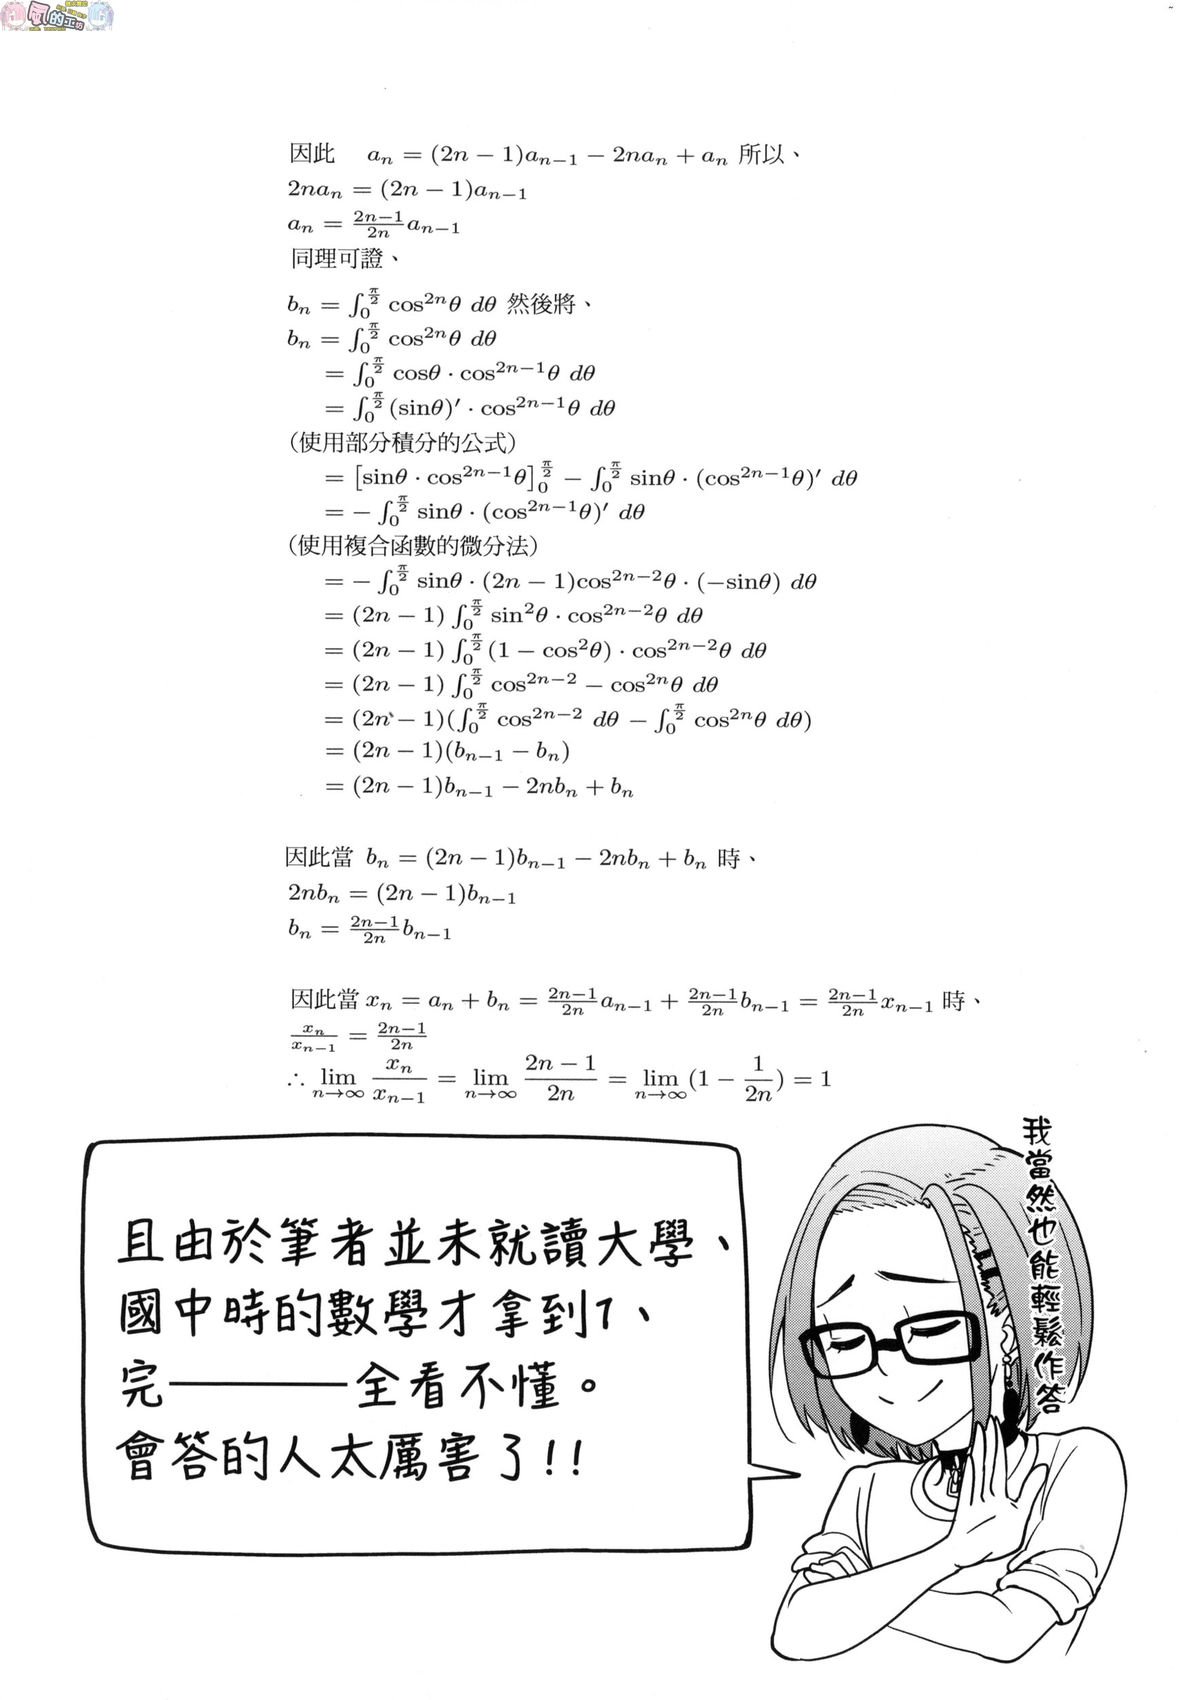 氣的工坊
因此 aₙ = (2n − 1)aₙ₋₁ − 2naₙ + aₙ 所以、
2naₙ = (2n − 1)aₙ₋₁
aₙ = \frac{2n−1}{2n}aₙ₋₁
同理可證、
bₙ = ∫_0^{\frac{π}{2}} cos²ⁿθ dθ 然後將、
bₙ = ∫_0^{\frac{π}{2}} cos²ⁿθ dθ
= ∫_0^{\frac{π}{2}} cosθ · cos²ⁿ⁻¹θ dθ
= ∫_0^{\frac{π}{2}} (sinθ)′ · cos²ⁿ⁻¹θ dθ
(使用部分積分的公式)
= [sinθ · cos²ⁿ⁻¹θ]_0^{\frac{π}{2}} − ∫_0^{\frac{π}{2}} sinθ · (cos²ⁿ⁻¹θ)′ dθ
= − ∫_0^{\frac{π}{2}} sinθ · (cos²ⁿ⁻¹θ)′ dθ
(使用複合函數的微分法)
= − ∫_0^{\frac{π}{2}} sinθ · (2n − 1)cos²ⁿ⁻²θ · (−sinθ) dθ
= (2n − 1) ∫_0^{\frac{π}{2}} sin²θ · cos²ⁿ⁻²θ dθ
= (2n − 1) ∫_0^{\frac{π}{2}} (1 − cos²θ) · cos²ⁿ⁻²θ dθ
= (2n − 1) ∫_0^{\frac{π}{2}} cos²ⁿ⁻² − cos²ⁿθ dθ
= (2n − 1)(∫_0^{\frac{π}{2}} cos²ⁿ⁻² dθ − ∫_0^{\frac{π}{2}} cos²ⁿθ dθ)
= (2n − 1)(bₙ₋₁ − bₙ)
= (2n − 1)bₙ₋₁ − 2nbₙ + bₙ
因此當 bₙ = (2n − 1)bₙ₋₁ − 2nbₙ + bₙ 時、
2nbₙ = (2n − 1)bₙ₋₁
bₙ = \frac{2n−1}{2n}bₙ₋₁
因此當 xₙ = aₙ + bₙ = \frac{2n−1}{2n}aₙ₋₁ + \frac{2n−1}{2n}bₙ₋₁ = \frac{2n−1}{2n}xₙ₋₁ 時、
\frac{xₙ}{xₙ₋₁} = \frac{2n−1}{2n}
∴ lim_{n→∞} \frac{xₙ}{xₙ₋₁} = lim_{n→∞} \frac{2n − 1}{2n} = lim_{n→∞} (1 − \frac{1}{2n}) = 1
我當然也能輕鬆作答
且由於筆者並未就讀大學、
國中時的數學才拿到1、
完————全看不懂。
會答的人太厲害了!!